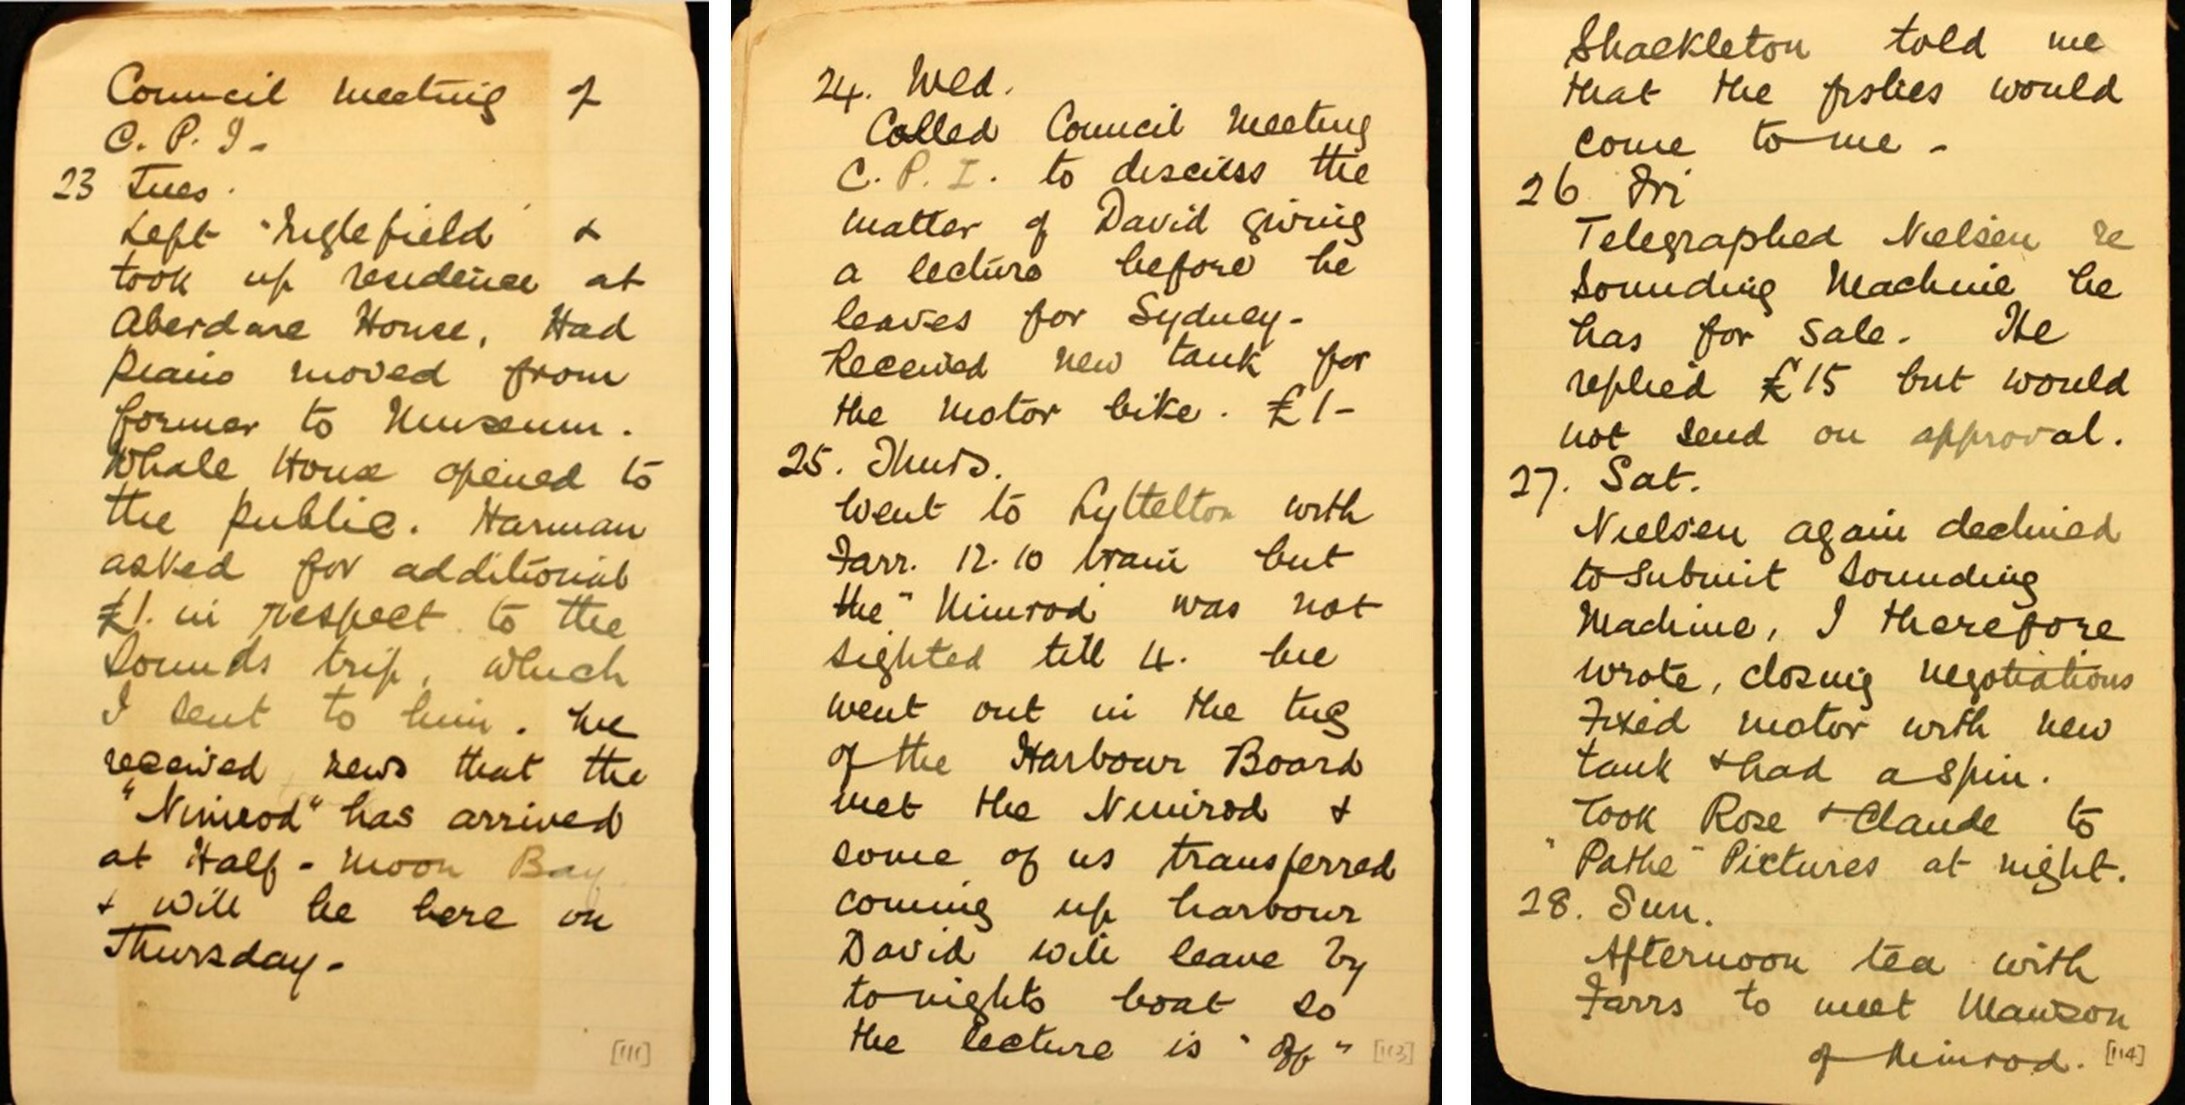 Council meeting of
C. P. I -
23 Tues.
Left "Inglefield" &
took up residence at
Aberdare House, Had
piano moved from
former to Museum.
Whale House opened to
the public. Harman
asked for additional
£1. in respect to the
Sounds trip, which
I sent to him. We
received news that the
"Nimrod" has arrived
at Half - Moon Bay
& will be here on
Thursday -
[111]
24. Wed.
Called Council Meeting
C. P. I. to discuss the
matter of David giving
a lecture before he
leaves for Sydney -
Received new tank for
the motor bike. £1 -
25. Thurs.
Went to Lyttelton with
Farr. 12.10 train but
the "Nimrod" was not
sighted till 4. We
went out in the tug
of the Harbour Board
met the Nimrod &
some of us transferred
coming up harbour
David will leave by
to nights boat so
the lecture is "off"
[113]
Shackleton told me
that the fishes would
come to me -
26 Fri
Telegraphed Nielsen re
Sounding Machine he
has for sale. He
replied £15 but would
not send on approval.
27. Sat.
Nielsen again declined
to submit Sounding
Machine, I therefore
wrote, closing negotiations
Fixed motor with new
tank & had a spin.
Took Rose & Claude to
"Pathe" Pictures at night.
28. Sun.
Afternoon tea with
Farrs to meet Mawson
of Nimrod.
[114]